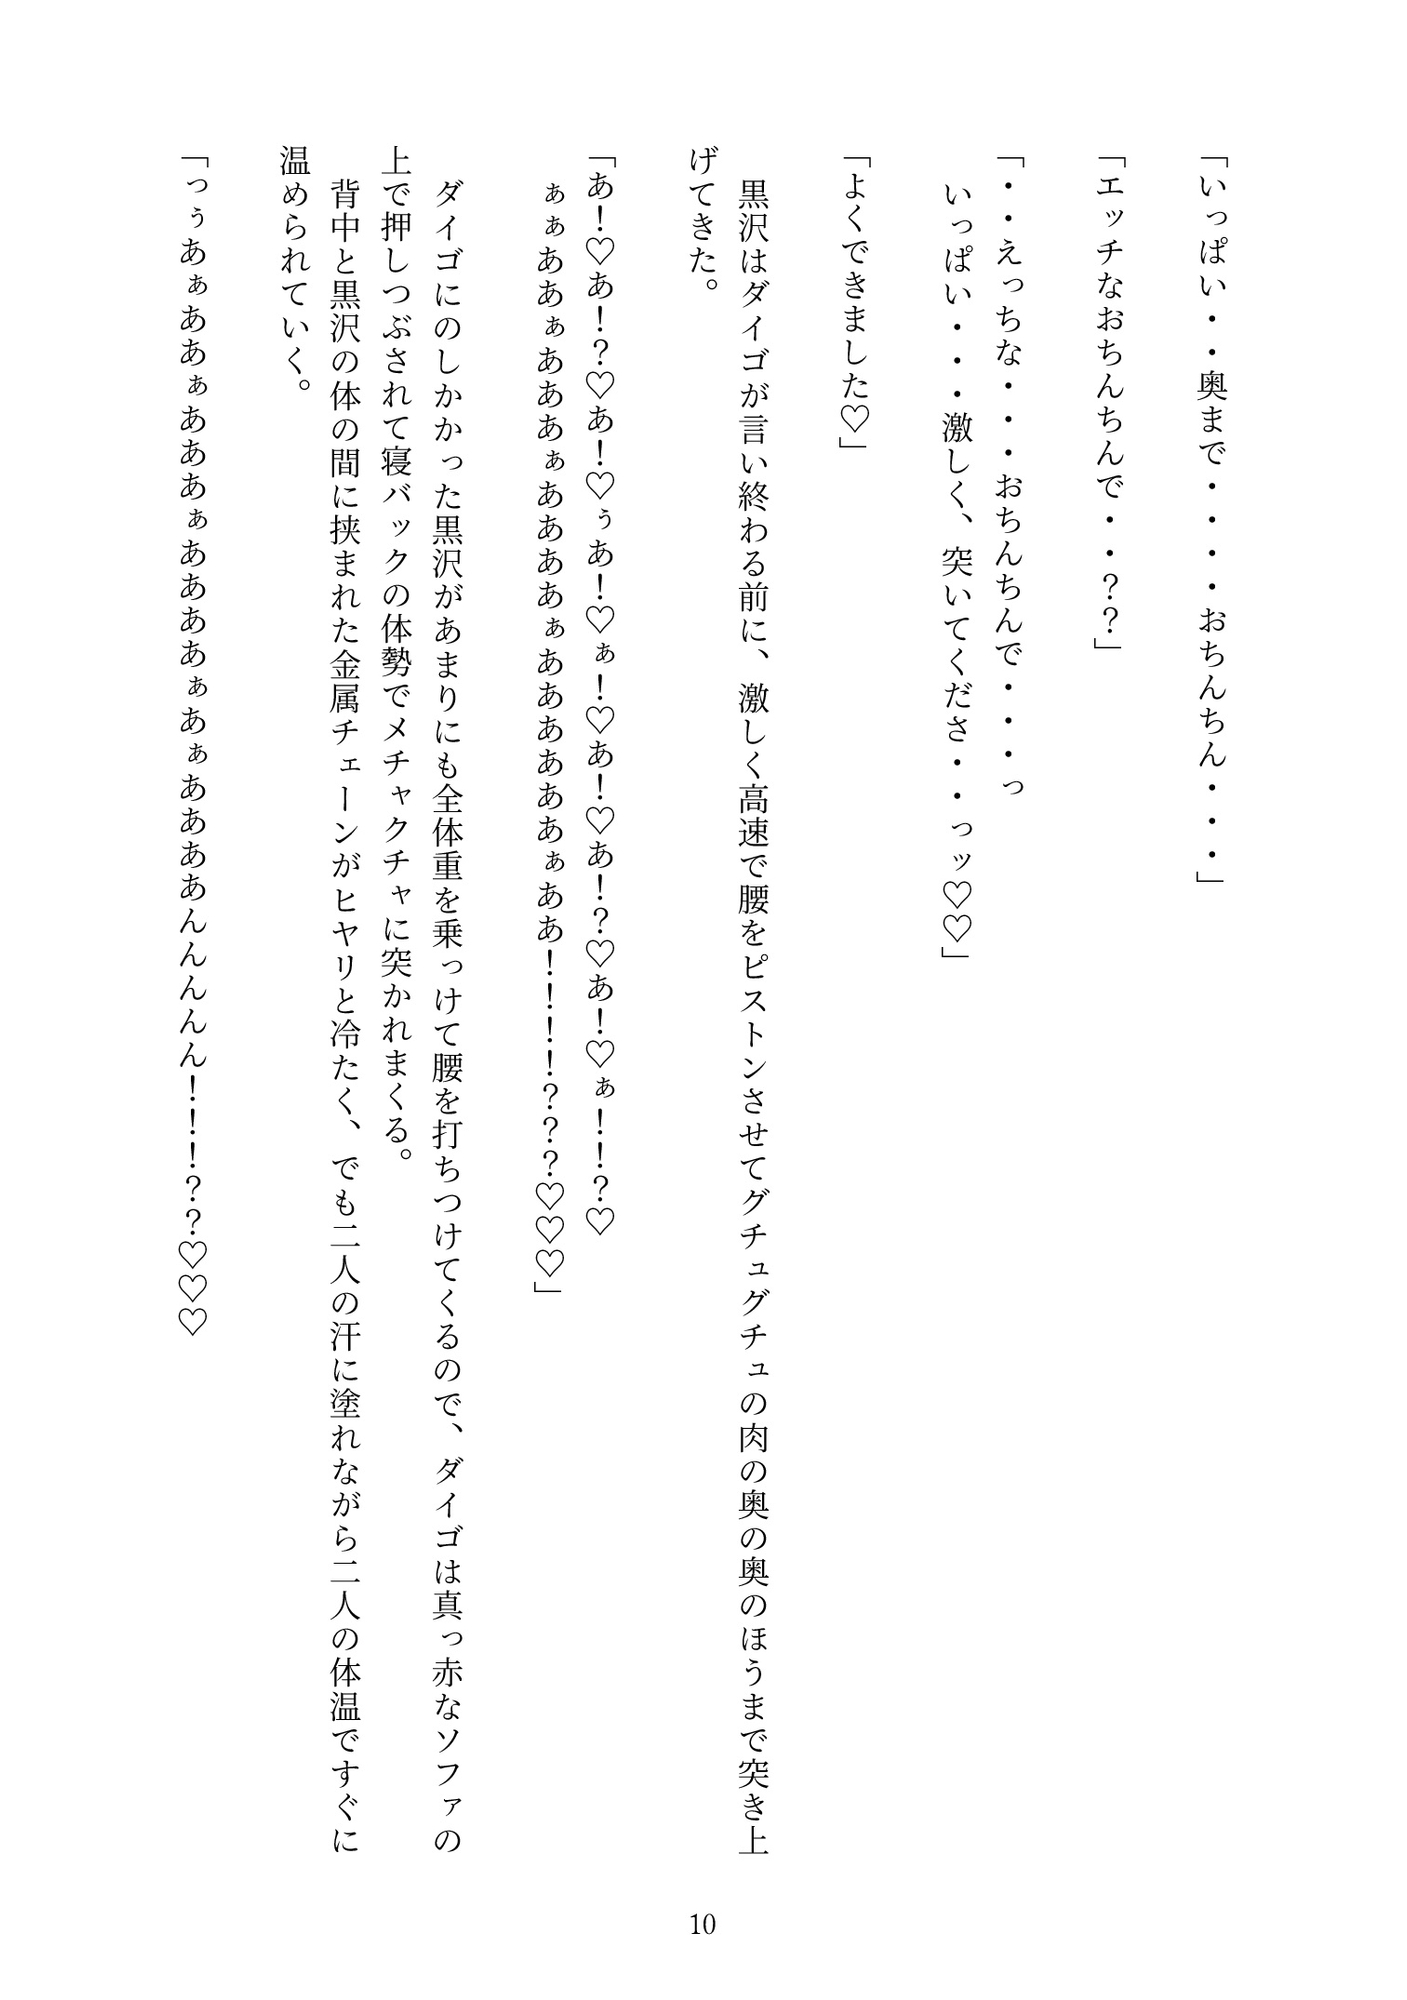 「いっぱい・・奥まで・・・・おちんちん・・・」
「エッチなおちんちんで・・？？」
「・・えっちな・・・おちんちんで・・・っ
いっぱい・・・激しく、突いてくださ・・っッ♡♡」
「よくできました♡」
黒沢はダイゴが言い終わる前に、激しく高速で腰をピストンさせてグチュグチュの肉の奥の奥のほうまで突き上
げてきた。
「あ！♡あ！？♡あ！♡ぅあ！♡ぁ！♡あ！♡あ！？♡あ！♡ぁ！！？♡
ぁぁああぁあああぁああああぁああああああぁああ！！！！？？？♡♡♡」
ダイゴにのしかかった黒沢があまりにも全体重を乗っけて腰を打ちつけてくるので、ダイゴは真っ赤なソファの
上で押しつぶされて寝バックの体勢でメチャクチャに突かれまくる。
背中と黒沢の体の間に挟まれた金属チェーンがヒヤリと冷たく、でも二人の汗に塗れながら二人の体温ですぐに
温められていく。
「っぅあぁああぁあああぁああああぁあぁああああんんんんん！！！？？♡♡♡
10